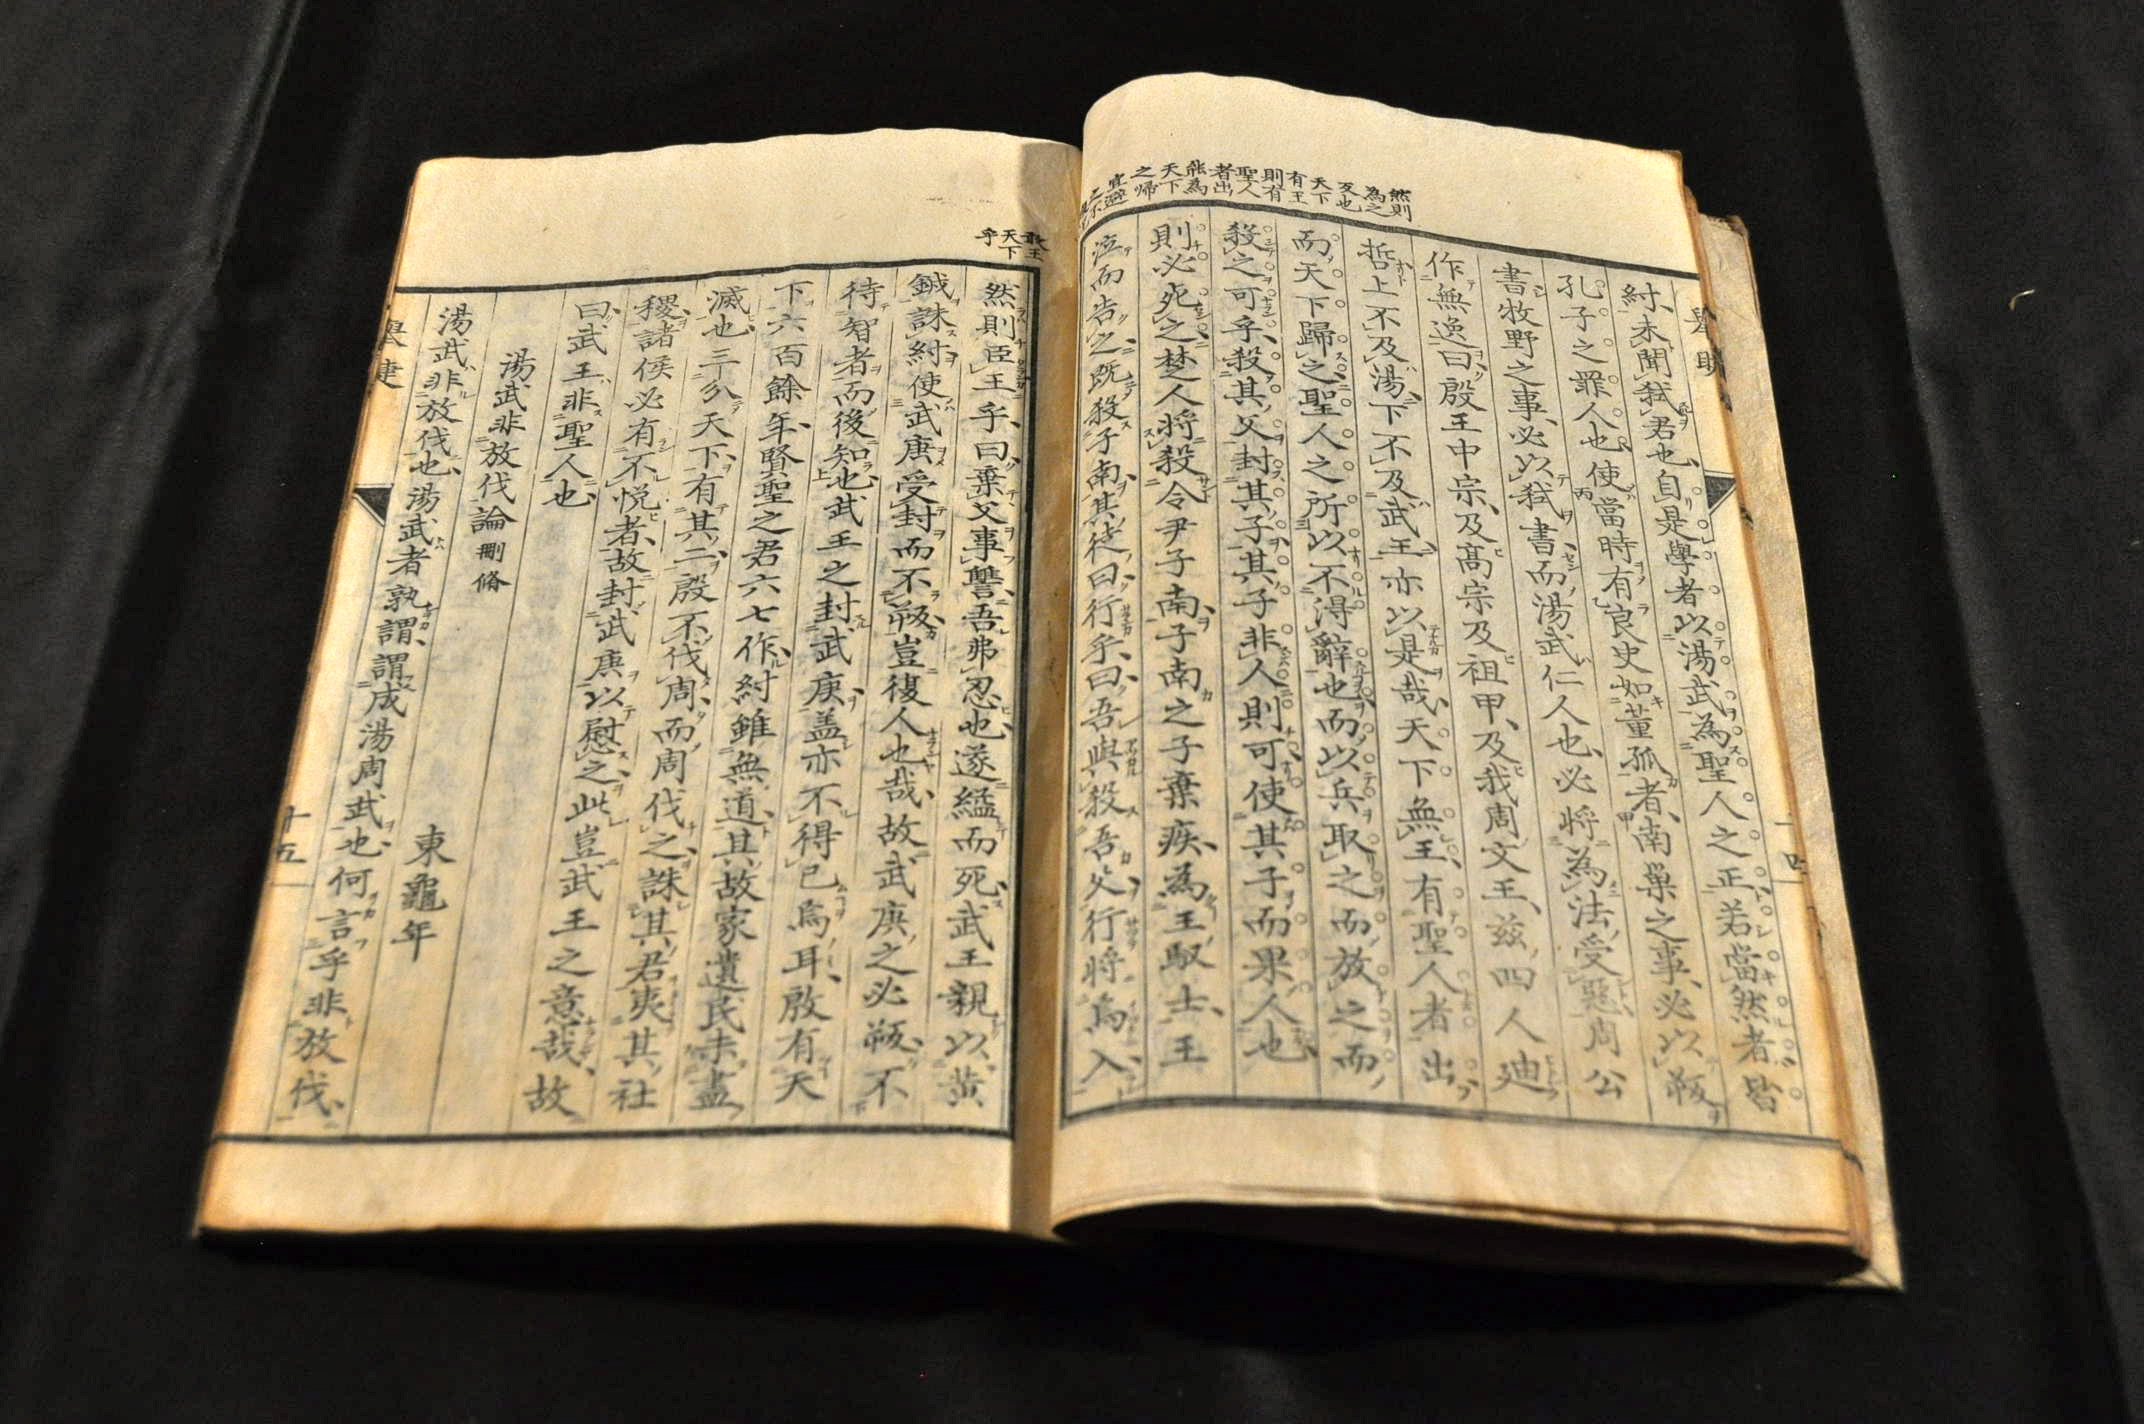 然則
為之
反也
天下
有王
則有
聖人
者出
能為
天下
之帰
宜避
紂、未聞弑君也、自是學者以湯武為聖人之正若當然者皆
孔子之罪人也、使當時有良史如董孤者、南巢之事、必以叛
書牧野之事、必以弑書而、湯武仁人也、必將為法受惡周公
作無逸曰、殷王中宗、及高宗及祖甲、及我周文王、茲四人迪
哲上不及湯、下不及武王亦以是哉、天下無王、有聖人者出、
而天下歸之聖人之所以不得辭也而以兵取之而放之而
殺之可乎、殺其父封其子其子非人則可使其子而果人也、
則必死之楚人將殺令尹子南、子南之子棄疾、為王馭士、王
泣而告之、既殺子南、其徒曰、行乎、曰、吾與殺吾父、行將焉入、
敢王
天下
乎
然則臣王乎、曰、棄父事讐、吾弗忍也、遂縊而死、武王親以黃
鉞誅紂使武庚受封而不叛、豈復人也哉、故武庚之必叛、不
待智者而後知也武王之封武庚、盖亦不得已焉耳、殷有天
下六百餘年、賢聖之君六七作、紂雖無道、其故家遺民未盡
滅也、三分天下、有其二、殷不伐周、而周伐之、誅其君夷其社
稷諸侯必有不悅者、故封武庚以慰之、此豈武王之意哉、故
曰、武王非聖人也、
湯武非放伐論 刪脩
東龜年
湯武非放伐也、湯武者孰謂、謂成湯周武也、何言乎非放伐、
十五